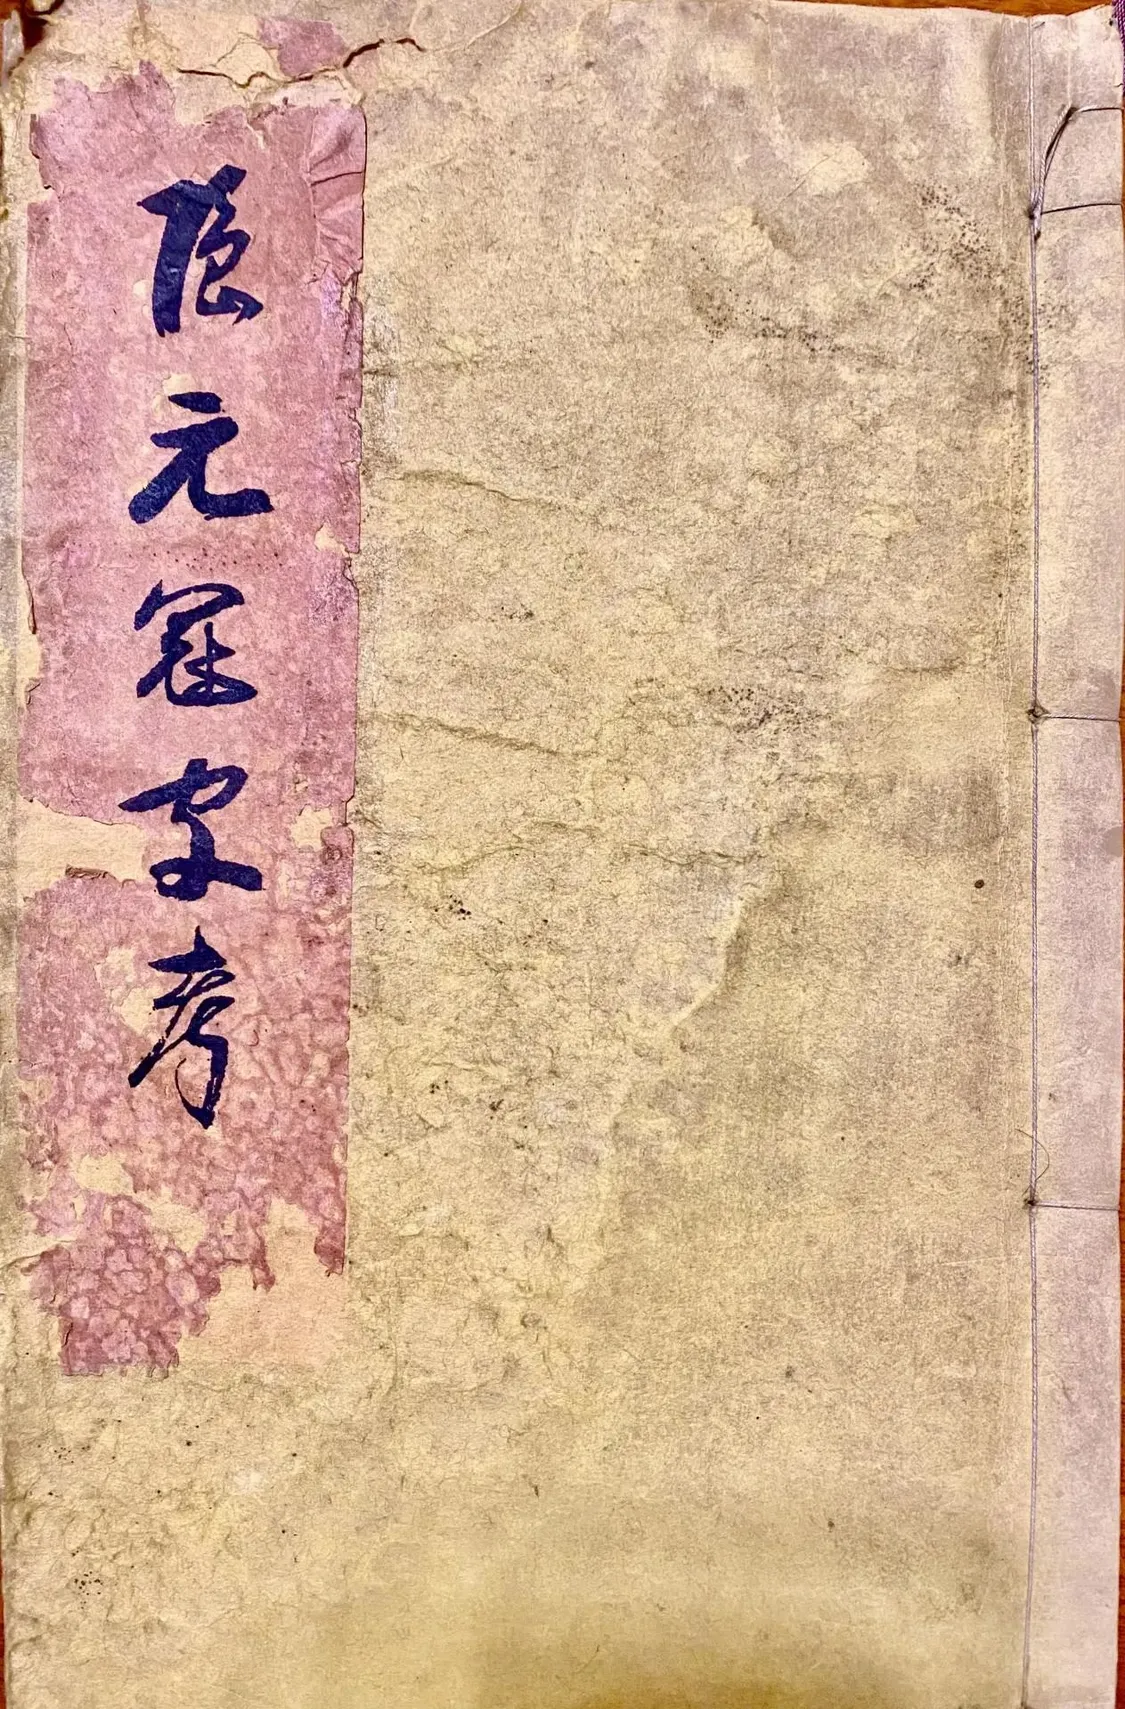 隱元冠字考